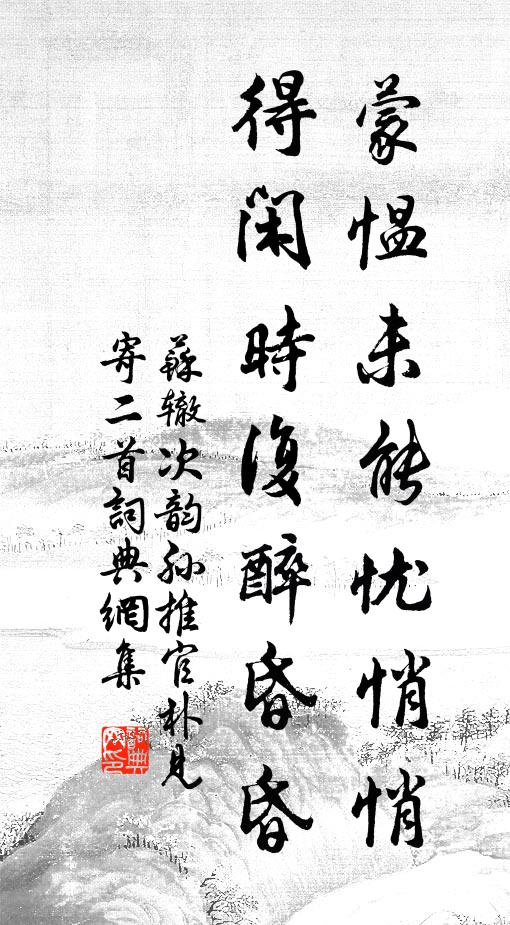 蒙愠未能忧悄悄
得闲時復醉昏昏
蘇辙次韵孙推官朴见
寄二首詞典網集